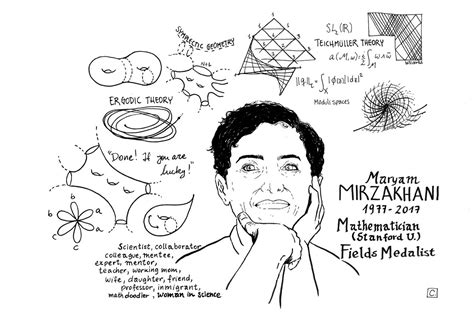 SYMPLECTIC GEOMETRY
SL₂(R)
TEICHMÜLLER THEORY
Moduli spaces
ERGODIC THEORY
"Done! If you are
lucky!"
b a
b a
c c
Maryam
MIRZAKHANI
1977-2017
Mathematician
(Stanford U.)
Fields Medalist
Scientist, collaborator
colleague, mentee,
expert, mentor,
teacher, working mom,
wife, daughter, friend,
professor, inmigrant,
math doodler, woman in science
C